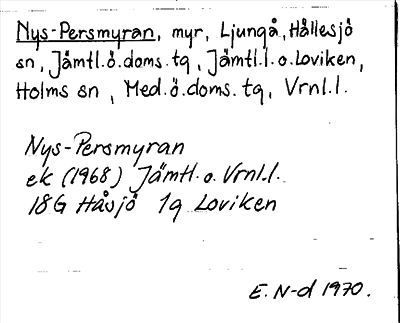 Nys-Persmyran, myr, Ljungå, Hållesjö
sn, Jämtl.ö.doms.tg, Jämtl.l. o. Loviken,
Holms sn, Med.ö.doms.tg, Vrnl.l.
Nys-Persmyran
ek (1968) Jämtl. o. Vrnl.l.
18G Håsjö 1g Loviken
E. N-d 1970.